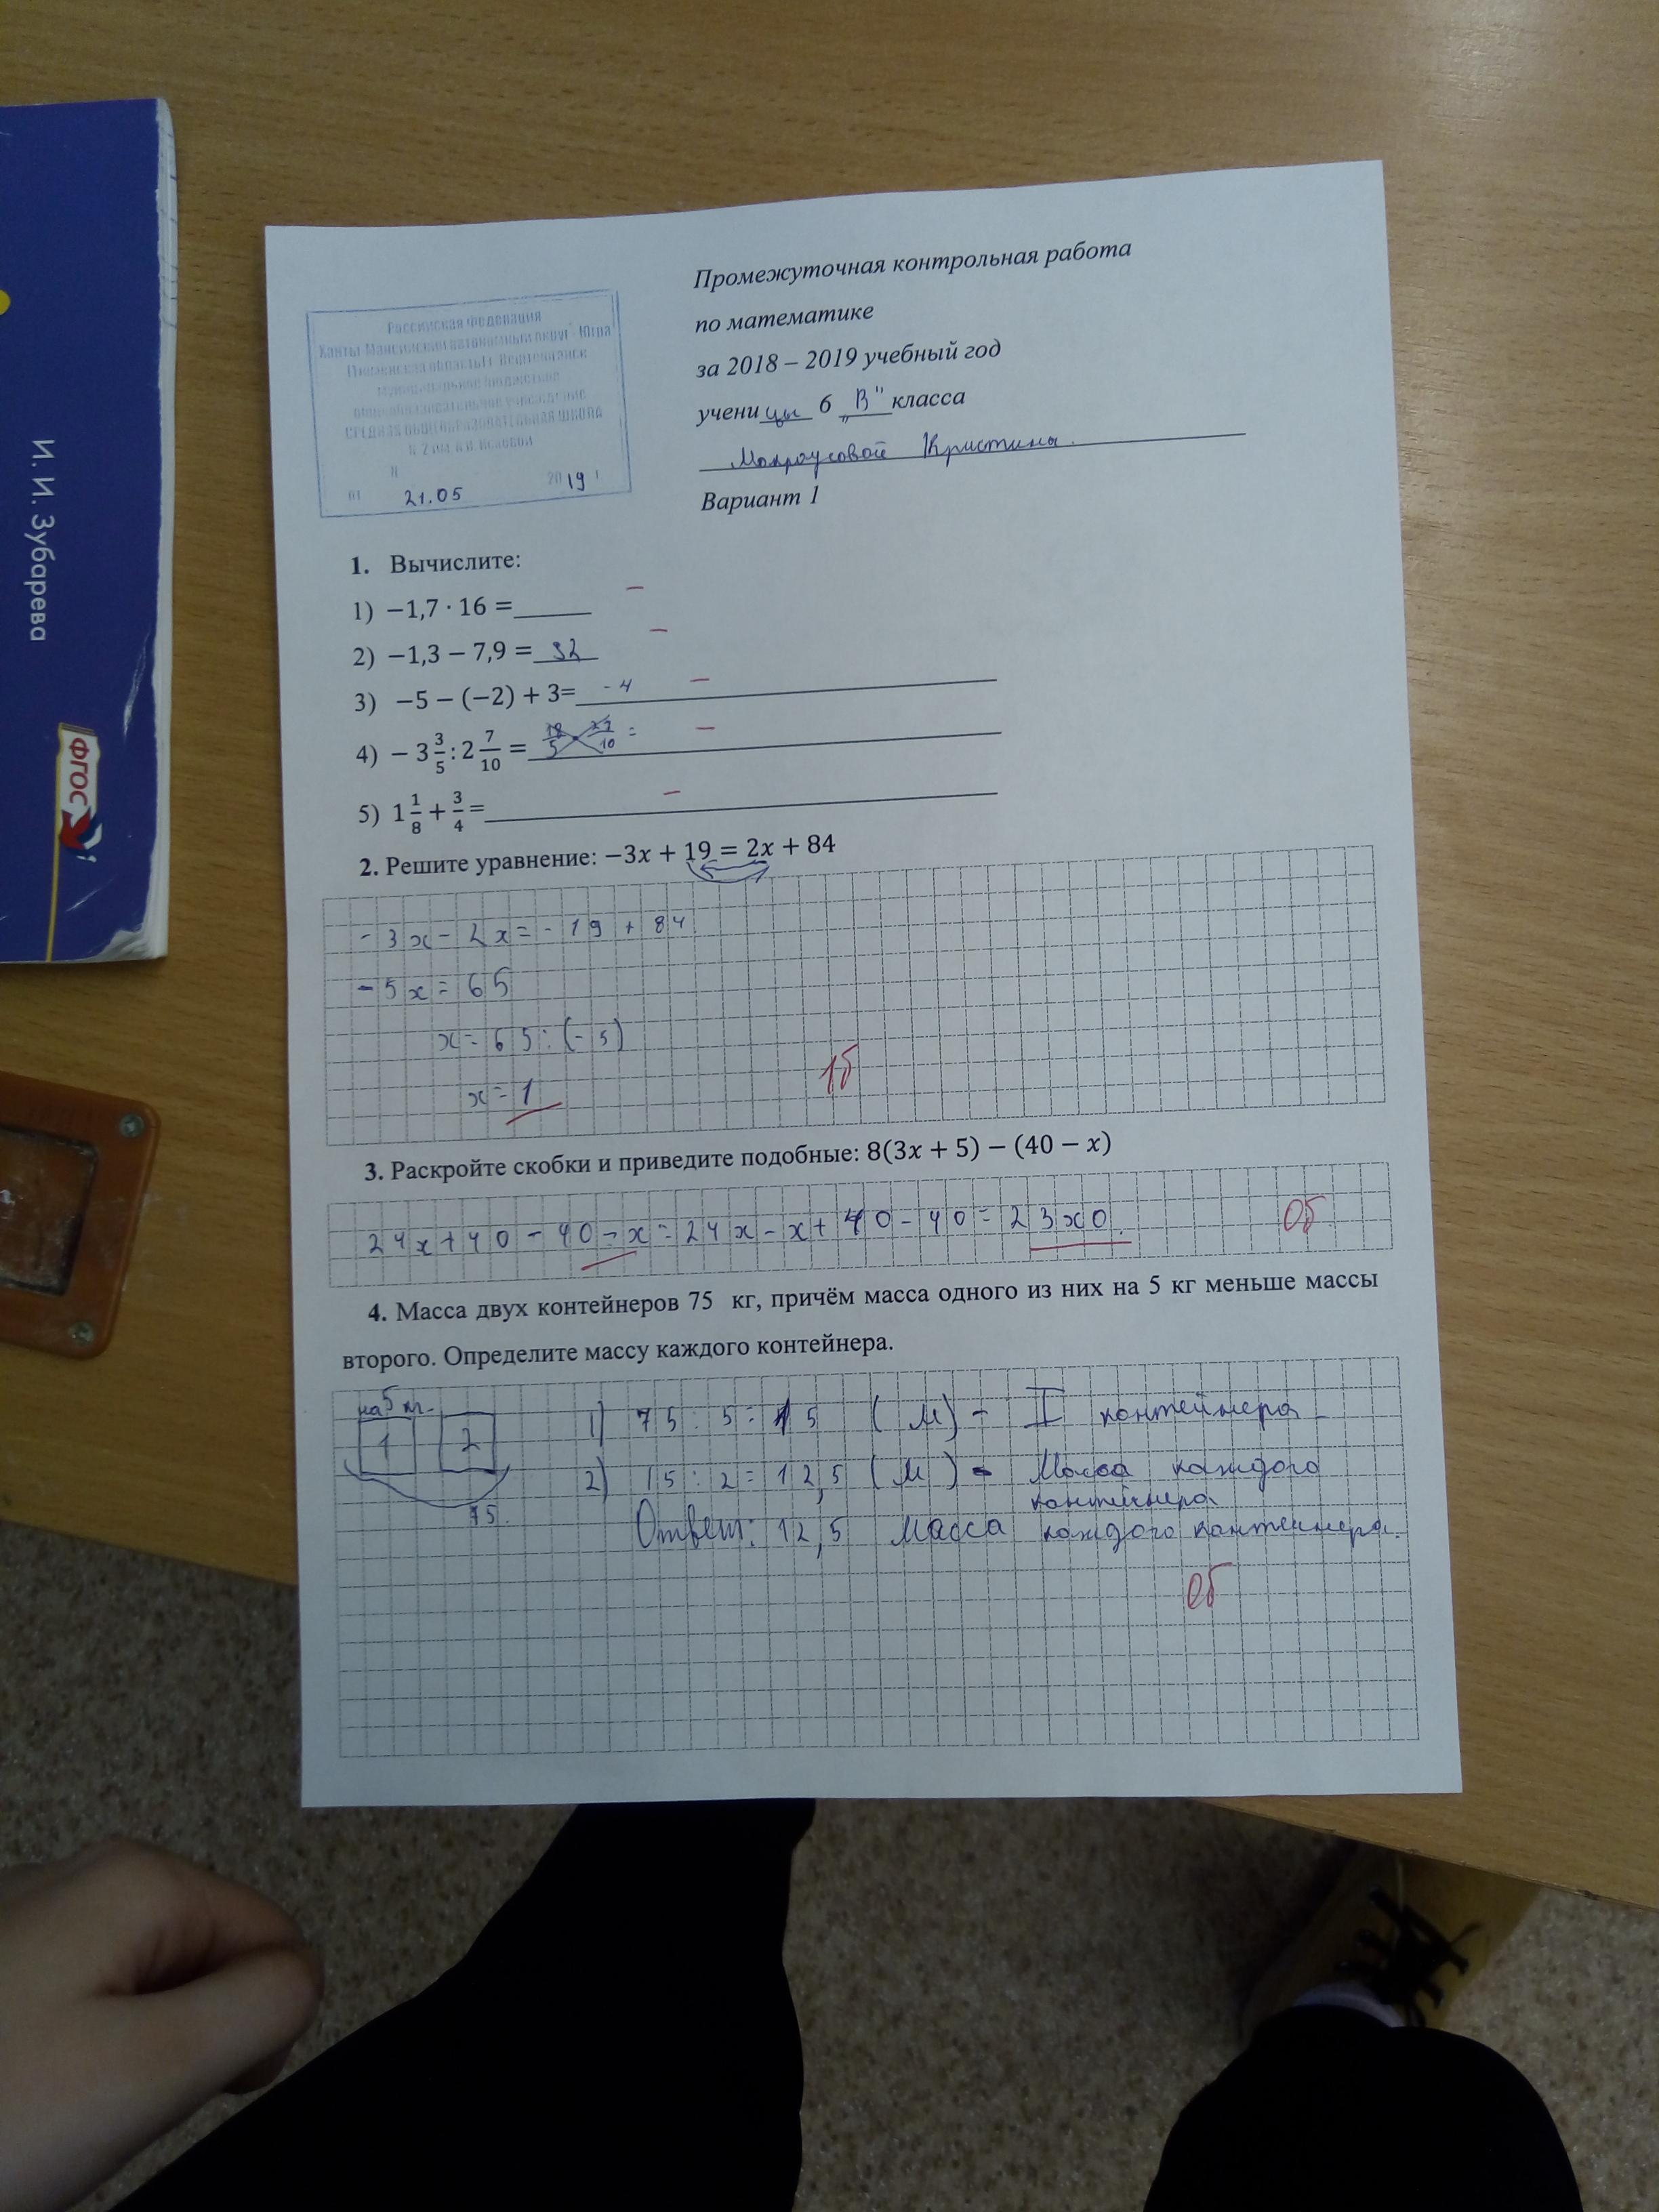 Российская Федерация
Ханты-Мансийский автономный округ - Югра
СРЕДНЯЯ ОБЩЕОБРАЗОВАТЕЛЬНАЯ ШКОЛА
N
от 21.05 2019 г
Промежуточная контрольная работа
по математике
за 2018 – 2019 учебный год
ученицы 6 „В" класса
Кристины
Вариант 1
1. Вычислите:
1) −1,7 · 16 = _____ –
2) −1,3 − 7,9 = 92 –
3) −5 − (−2) + 3= -4 –
4) − 3 3/5 : 2 7/10 = 18/5 27/10 = –
5) 1 1/8 + 3/4 = –
2. Решите уравнение: −3x + 19 = 2x + 84
-3x-2x=-19+84
-5x=65
x=65:(-5)
x=1
1б
3. Раскройте скобки и приведите подобные: 8(3x + 5) − (40 − x)
24x+40-40-x=24x-x+40-40=23x0.
0б
4. Масса двух контейнеров 75 кг, причём масса одного из них на 5 кг меньше массы
второго. Определите массу каждого контейнера.
на 5 кг.
1 2
75.
1) 75:5=15 (м) - I контейнера
2) 15:2=12,5 (м) - Масса каждого
контейнера
Ответ: 12,5 масса каждого контейнера.
0б
И. И. Зубарева
ФГОС